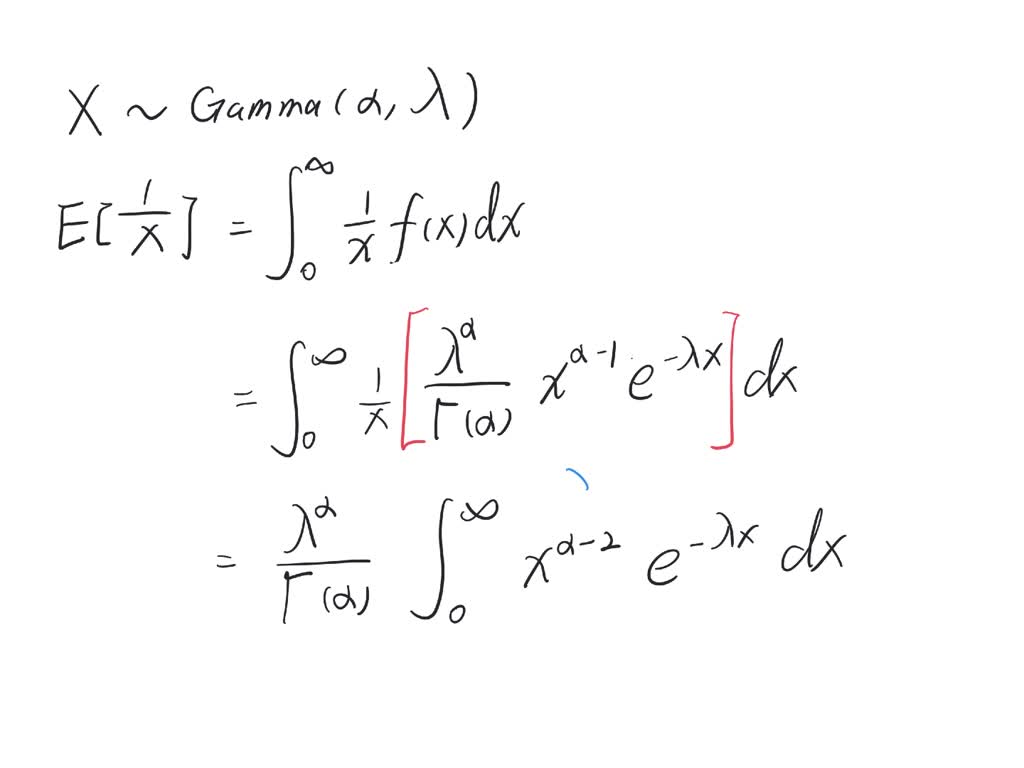 X ~ Gamma(α, λ)
E[1/X] = ∫₀^∞ 1/x f(x)dx
= ∫₀^∞ 1/x [λ^α/Γ(α) x^(α-1) e^(-λx)] dx
= λ^α/Γ(α) ∫₀^∞ x^(α-2) e^(-λx) dx